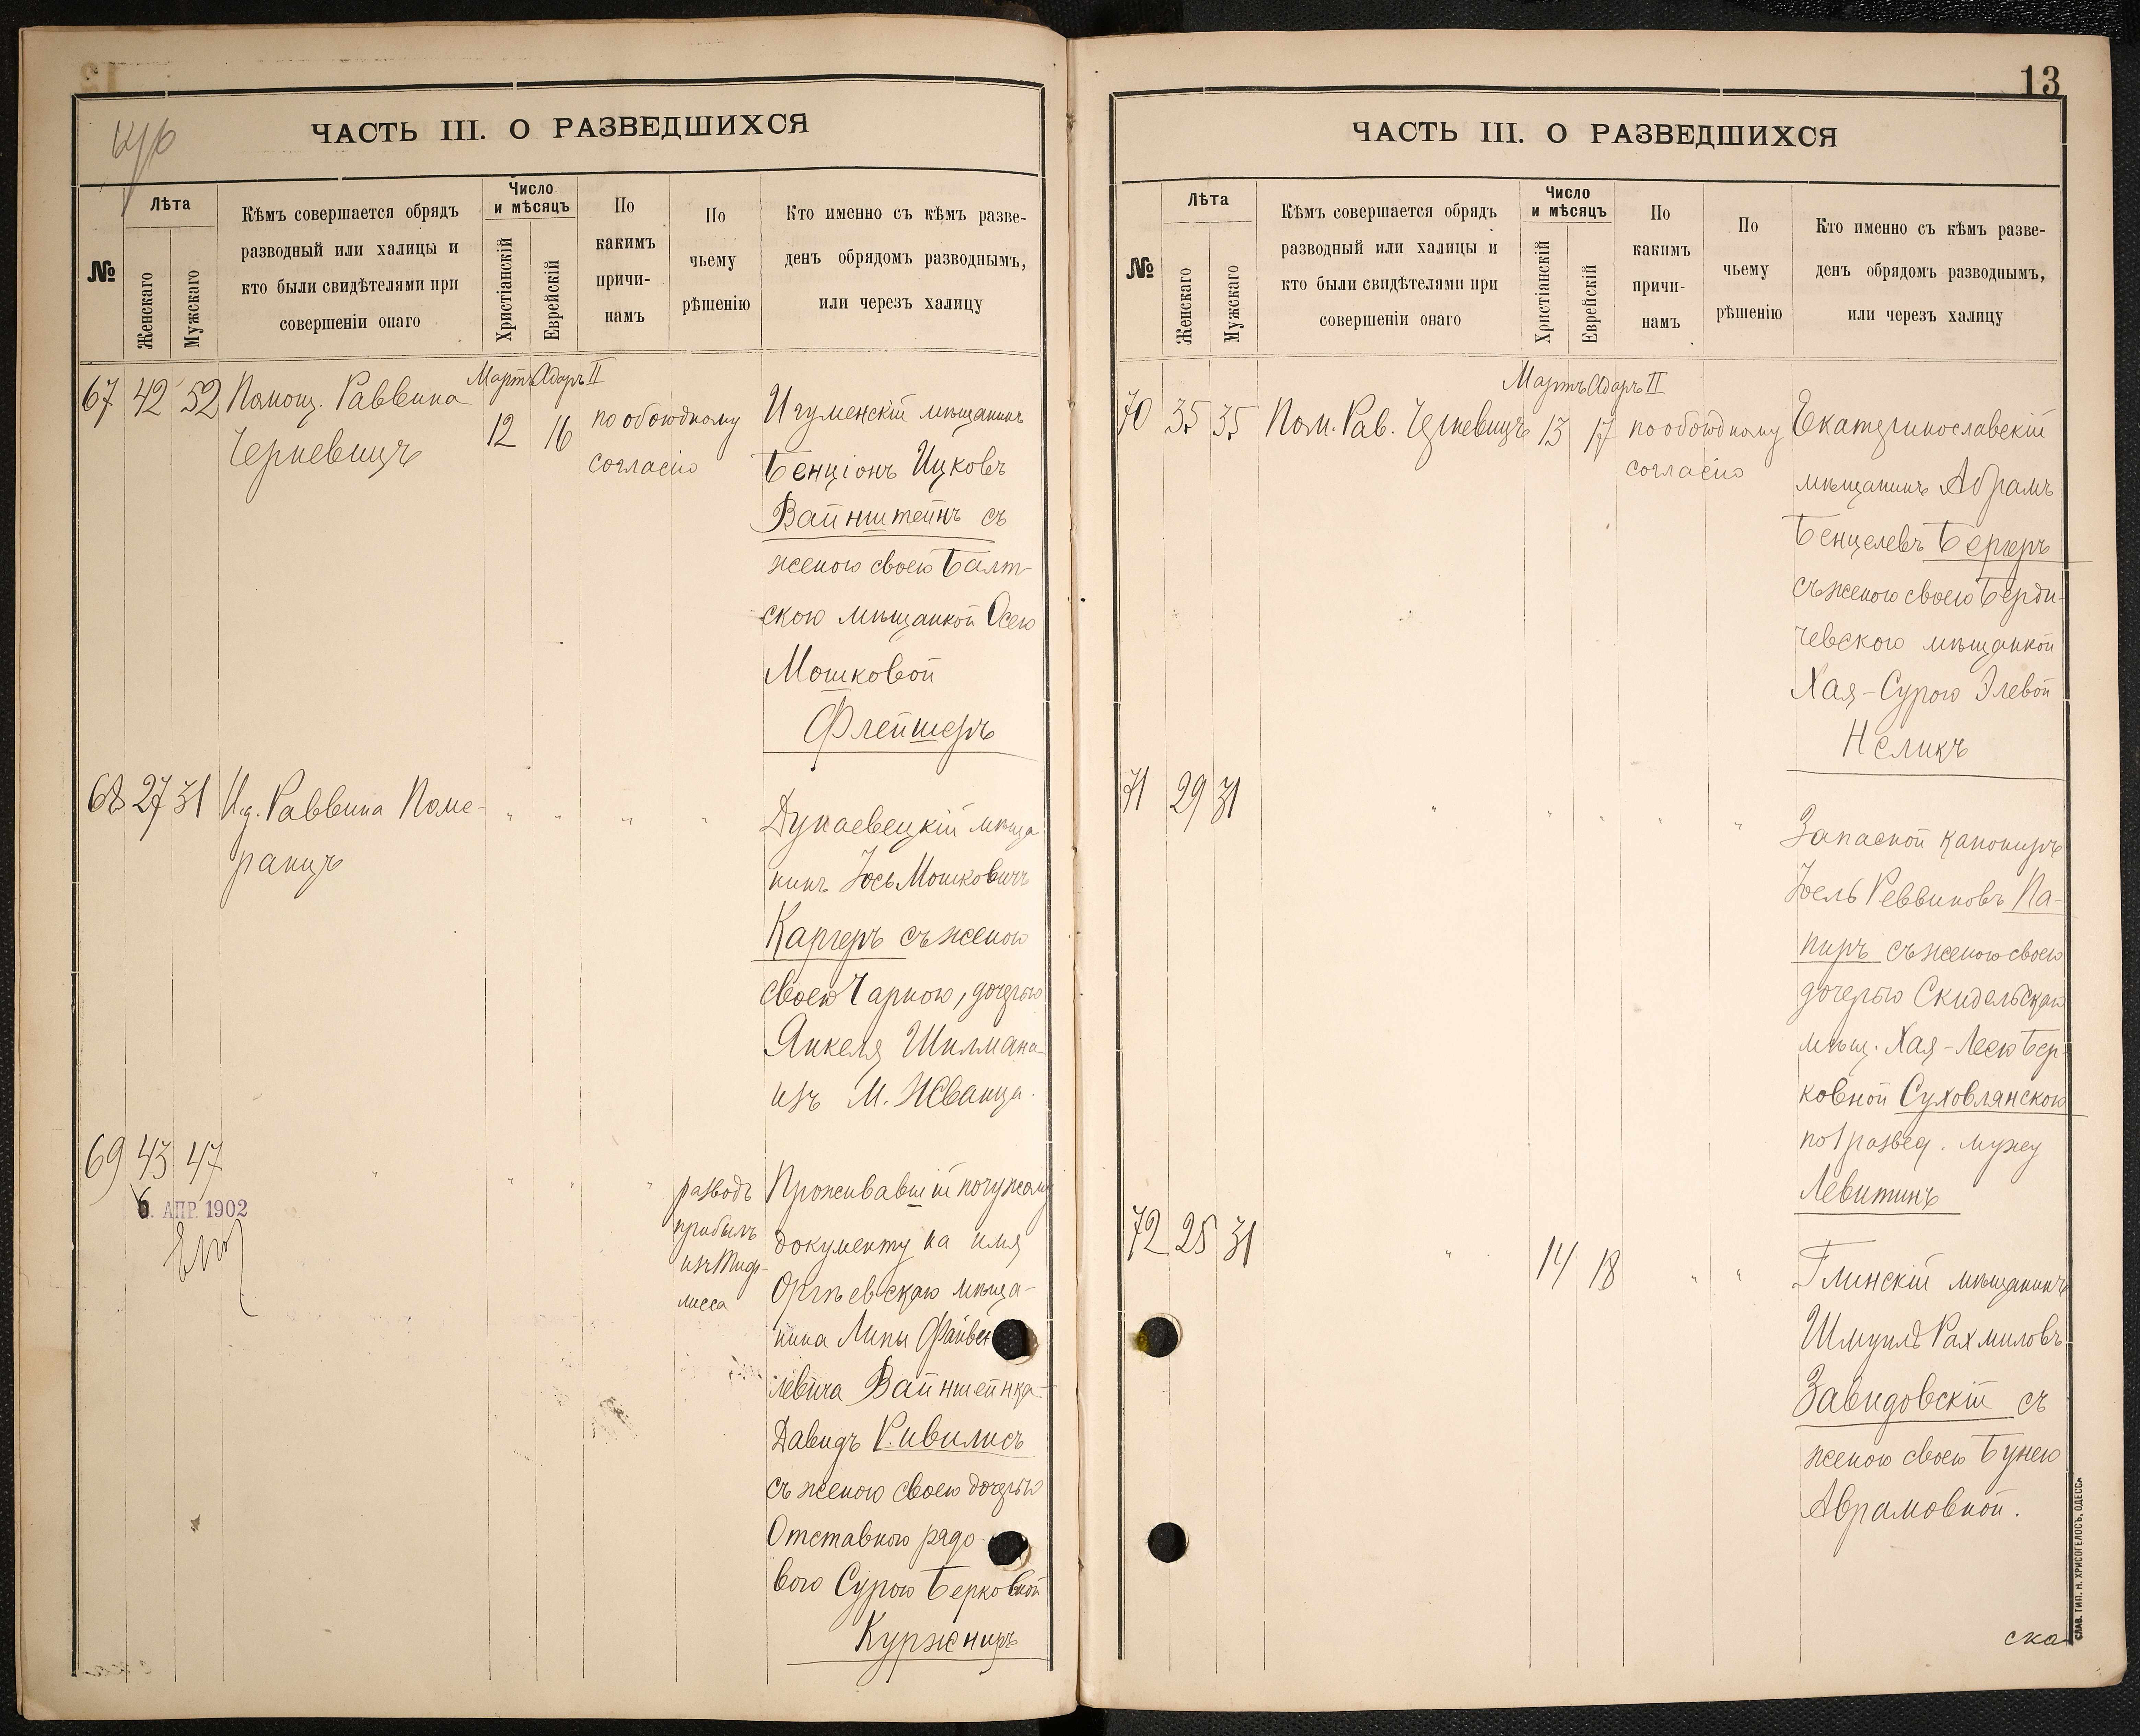 ЧАСТЬ III. О РАЗВЕДШИХСЯ
№
Лѣта
Женскаго
Мужскаго
Кѣмъ совершается обрядъ
разводный или халицы и
кто были свидѣтелями при
совершеніи онаго
Число
и мѣсяцъ
Христіанскій
Еврейскій
По
какимъ
причи-
намъ
По
чьему
рѣшенію
Кто именно съ кѣмъ разве-
денъ обрядомъ разводнымъ,
или черезъ халицу
67 42 52 Помощ. Раввина
Черневицъ
Мартъ Адаръ II
12 16
по обоюдному
согласію
Игуменскій мѣщанинъ
Бенціонъ Ицковъ
Вайнштейнъ съ
женою своею Балт-
скою мѣщанкой Осею
Мошковой
Флейшеръ
68 27 31 И.д. Раввина Поме-
ранцъ
" " " "
Дунаевецкій мѣща
нинъ Іось Мошковичъ
Каргеръ съ женою
своею Чарною, дочерью
Янкеля Шилмана
изъ М. Жванца.
69 43 47
" " " "
6. АПР. 1902
разводъ
прибылъ
изъ Тиф-
лисса
Проживавшій по чужому
документу на имя
Оргѣевскаго мѣща-
нина Липы Файвен
левича Вайншейнка-
Давидъ Ривилисъ
съ женою своею дочерью
Отставного рядо-
вого Сурою Берковной
Куржнеръ
13
ЧАСТЬ III. О РАЗВЕДШИХСЯ
№
Лѣта
Женскаго
Мужскаго
Кѣмъ совершается обрядъ
разводный или халицы и
кто были свидѣтелями при
совершеніи онаго
Число
и мѣсяцъ
Христіанскій
Еврейскій
По
какимъ
причи-
намъ
По
чьему
рѣшенію
Кто именно съ кѣмъ разве-
денъ обрядомъ разводнымъ,
или черезъ халицу
70 35 35 Пом. Рав. Черневицъ
Мартъ Адаръ II
13 17
по обоюдному
согласію
Екатеринославскій
мѣщанинъ Абрамъ
Бенцелевъ Бергеръ
съ женою своею Берди-
чевскою мѣщанкой
Хая-Сурою Элевой
Неликъ
71 29 31
" " " " "
Запасной канониръ
Іоель Реввиновъ Па-
пиръ съ женою своею
дочерью Скидельскаго
мѣщ. Хая-Лею Бер-
ковной Суховлянскою
по I развед. мужу
Левитинъ
72 25 31
"
14 18
" "
Глинскій мѣщанинъ
Шмуилъ Рахмиловъ
Завидовскій съ
женою своею Бунею
Абрамовной.
ска
СЛАВ. ТИП. Н. ХРИСОГЕЛОСЪ, ОДЕССА